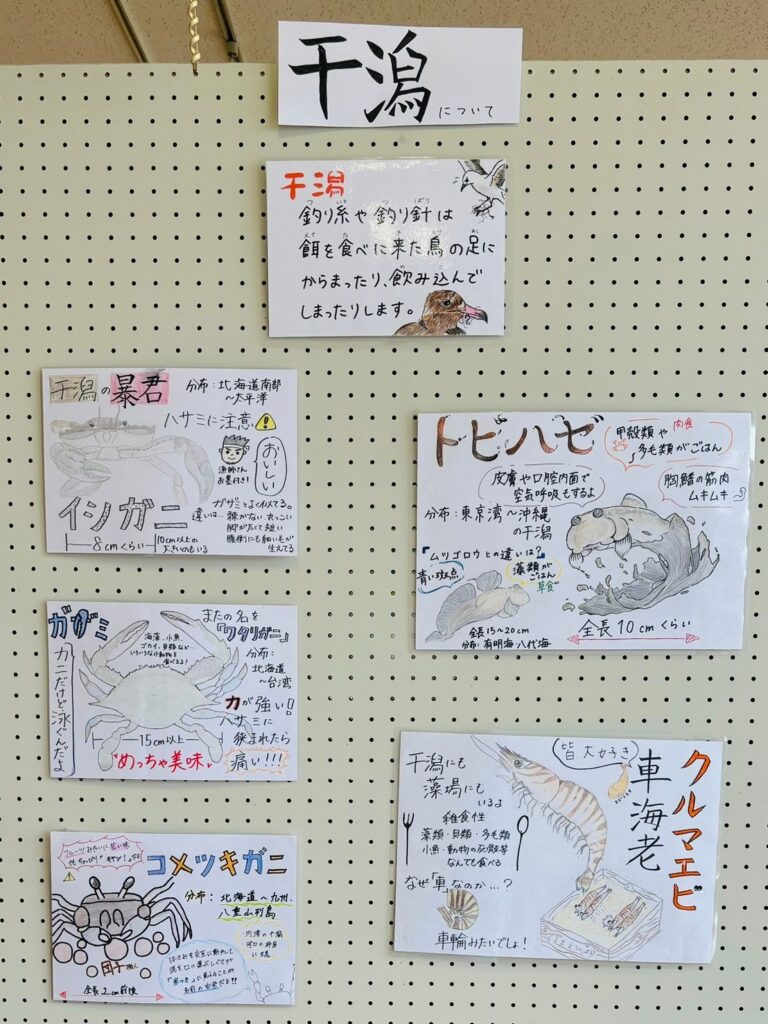 干潟について
干潟
釣り糸や釣り針は
餌を食べに来た鳥の足に
からまったり、飲み込んで
しまったりします。
干潟の暴君
分布：北海道南部
～太平洋
ハサミに注意
漁師さん
お墨付き！
おいしい
イシガニ
8cmくらい
10cm以上の
大きいのもいる
ガザミとよく似てる。
違いは…棘がない、丸っこい
脚が太くて短い
生えてる
トビハゼ
甲殻類や
多毛類がごはん
肉食
皮膚や口腔内面で
空気呼吸もするよ
胸鰭の筋肉
ムキムキ
分布：東京湾～沖縄
の干潟
『ムツゴロウとの違いは？』
青い斑点
藻類が
ごはん
草食
全長15～20cm
分布：有明海・八代海
全長10cmくらい
ガザミ
またの名を
『ワタリガニ』
海藻、小魚、
ゴカイ、貝類など…
いろいろな小動物を
食べるよ！
カニだけど泳ぐんだよ
分布：
北海道
～台湾
力が強い！
ハサミに
挟まれたら
痛い！！！
15cm以上
『めっちゃ美味』
クルマエビ
車海老
皆大好き
干潟にも
藻場にも
いるよ
雑食性
藻類・貝類・多毛類
小魚・動物の死骸等
なんでも食べる
なぜ「車」なのか…？
車輪みたいでしょ！
コメツキガニ
分布：北海道～九州、
八重山列島
内湾の干潟
団子職人
全長1cm前後